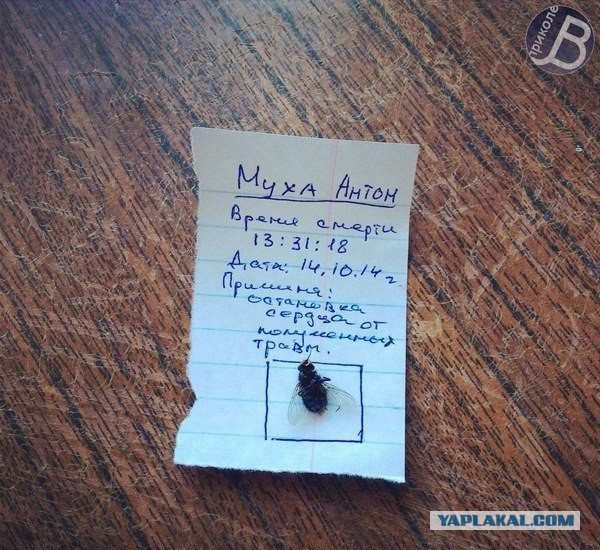 Приколе
В
Муха Антон
Время смерти
13:31:18
Дата: 14.10.14 г
Причина:
остановка
сердца от
полученных
травм.
YAPLAKAL.COM